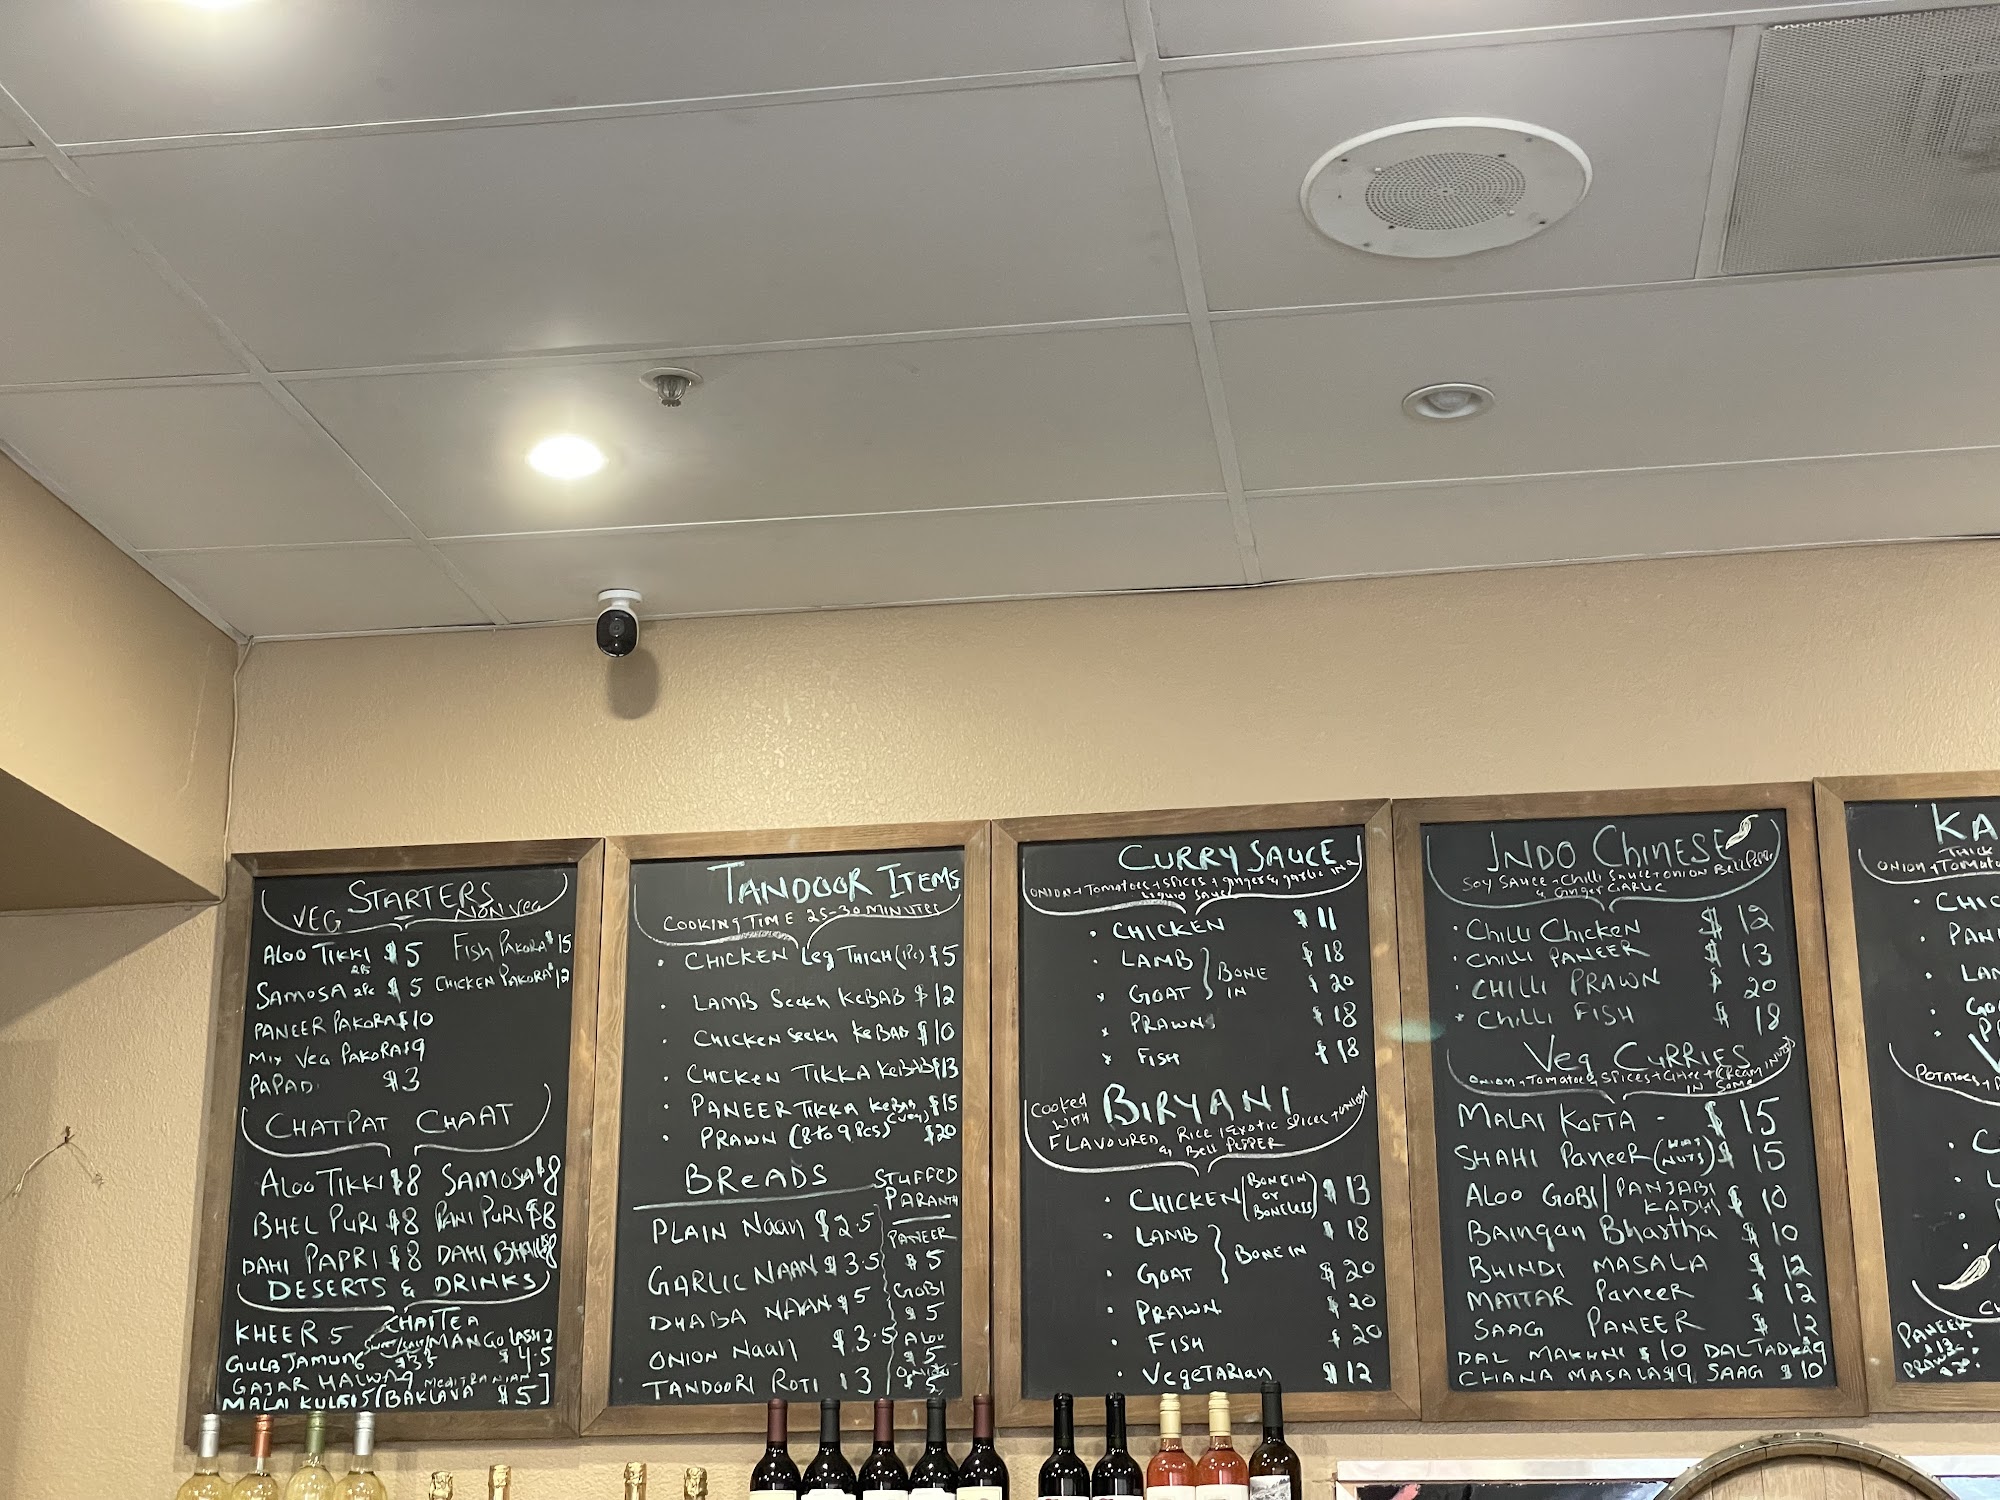 STARTERS
VEG NON VEG
ALOO TIKKI $5 FISH PAKORA $15
SAMOSA 2PC $5 CHICKEN PAKORA $12
PANEER PAKORA $10
MIX VEG PAKORA $9
PAPAD $3
CHATPAT CHAAT
ALOO TIKKI $8 SAMOSA $8
BHEL PURI $8 PANI PURI $8
DAHI PAPRI $8 DAHI BHALLE $8
DESERTS & DRINKS
CHAI TEA
KHEER 5 MANGO LASSI
GULB JAMUNS $4.5
GAJAR HALWA
MALAI KULFI 5 [BAKLAVA $5]
TANDOOR ITEMS
COOKING TIME 25-30 MINUTES
• CHICKEN Leg THIGH (1Pc) $5
• LAMB SeekH KeBAB $12
• CHICKEN SeekH KeBAB $10
• CHICKEN TIKKA KeBAB $13
• PANEER TIKKA KeBAB (Veg) $15
• PRAWN (8 to 9 PCS) $20
BREADS
PLAIN NAAN $2.5
GARLIC NAAN $3.5
DHABA NAAN $5
ONION NAAN $3.5
TANDOORI ROTI 3
STUFFED
PARANTH
PANEER
$5
GOBI
$5
ALOO
$5
ONION
$5
CURRY SAUCE
ONION + TOMATOES + SPICES + GINGER & GARLIC IN A
LIQUID SAUCE
• CHICKEN $11
• LAMB $18
BONE IN
• GOAT $20
• PRAWN $18
• FISH $18
BIRYANI
COOKED WITH
FLAVOURED RICE, EXOTIC SPICES + ONION
BELL PEPPER
• CHICKEN (BONE IN or BONELESS) $13
• LAMB $18
BONE IN
• GOAT $20
• PRAWN $20
• FISH $20
• VEGETARIAN $12
INDO CHINESE
SOY SAUCE + CHILLI SAUCE + ONION BELL PEPPER
& GINGER GARLIC
• CHILLI CHICKEN $12
• CHILLI PANEER $13
• CHILLI PRAWN $20
• CHILLI FISH $18
VEG CURRIES
ONION + TOMATOES, SPICES + GHEE + CREAM (NUTS
IN SOME
MALAI KOFTA - $15
SHAHI PANEER $15
ALOO GOBI / PANJABI KADHI $10
Baingan Bhartha $10
BHINDI MASALA $12
MATTAR PANEER $12
SAAG PANEER $12
DAL MAKHNI $10 DAL TADKA $9
CHANA MASALA $9 SAAG $10
KA
THICK
ONION + TOMATO
• CHIC
• PAN
• LAM
POTATOES +
PANEER
$13
PRAWN